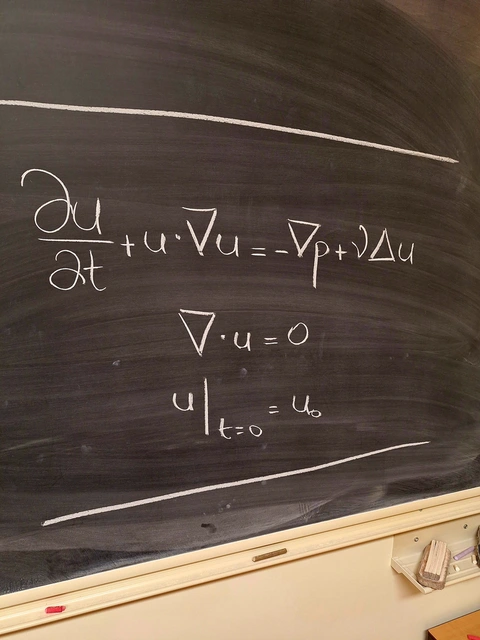 ∂u/∂t + u · ∇u = -∇p + νΔu
∇ · u = 0
u|t=0 = u₀